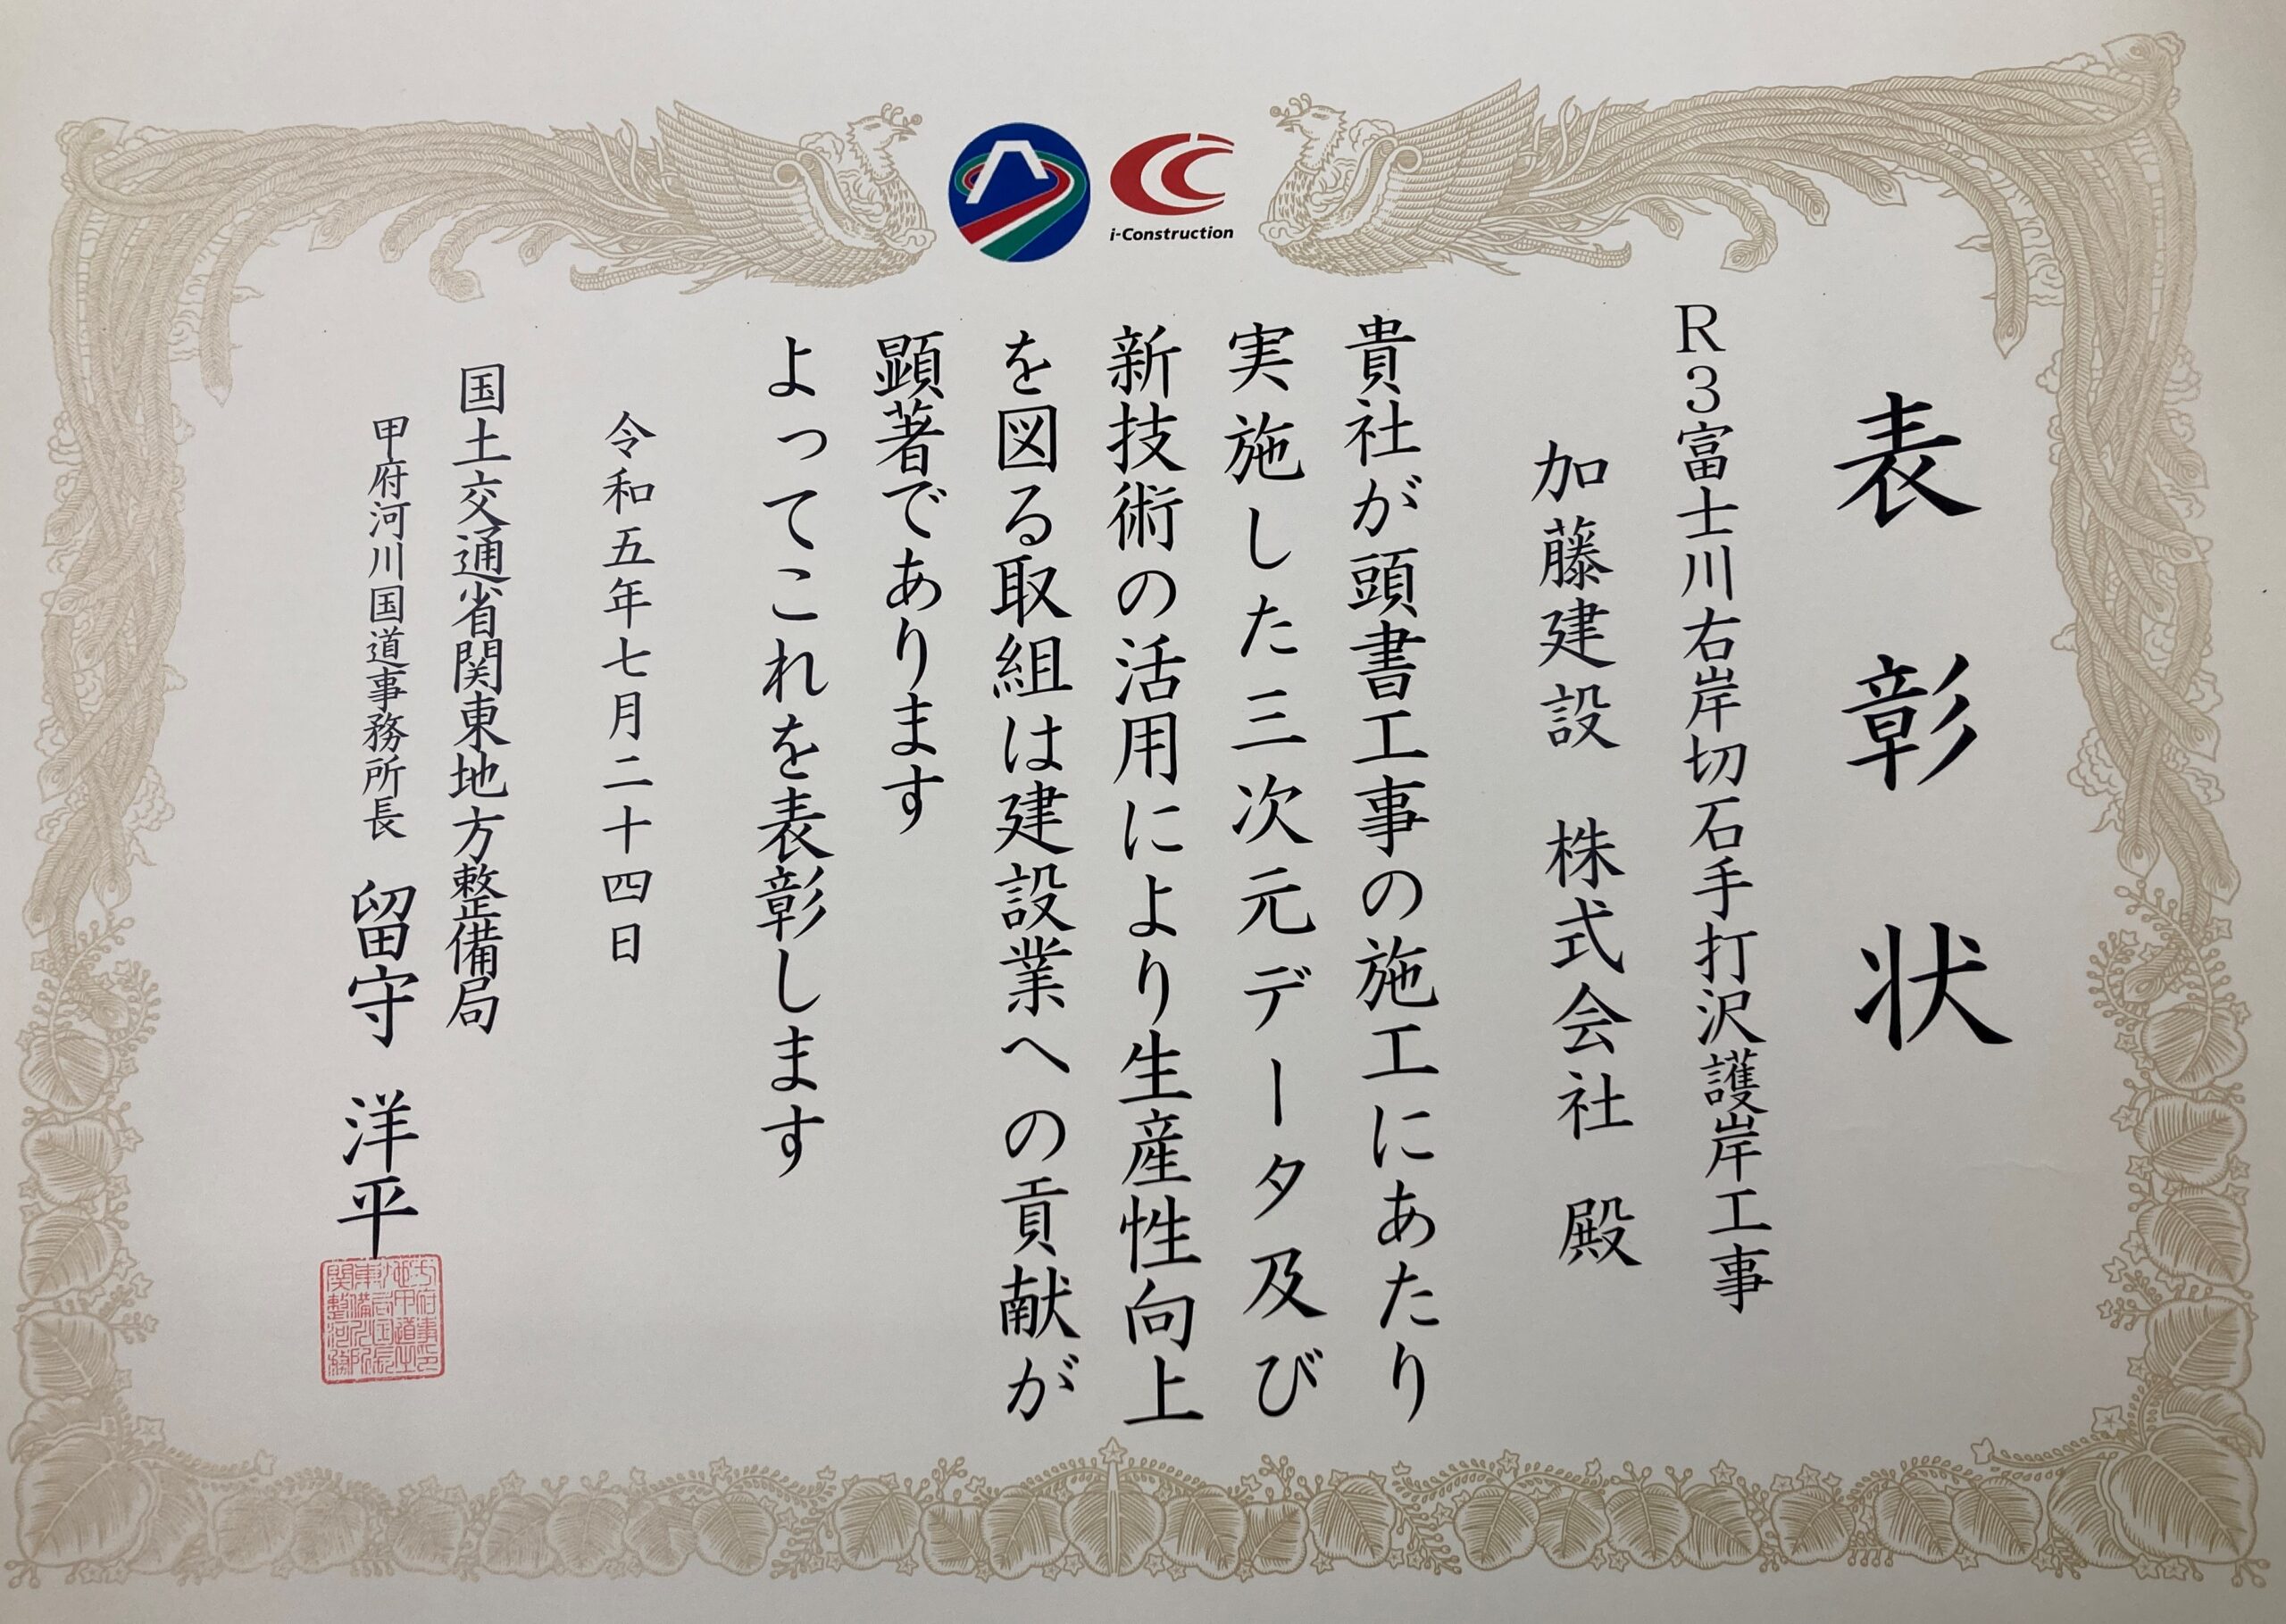 i-Construction
表彰状
R3富士川右岸切石手打沢護岸工事
加藤建設 株式会社 殿
貴社が頭書工事の施工にあたり
実施した三次元データ及び
新技術の活用により生産性向上
を図る取組は建設業への貢献が
顕著であります
よってこれを表彰します
令和五年七月二十四日
国土交通省関東地方整備局
甲府河川国道事務所長 留守 洋平